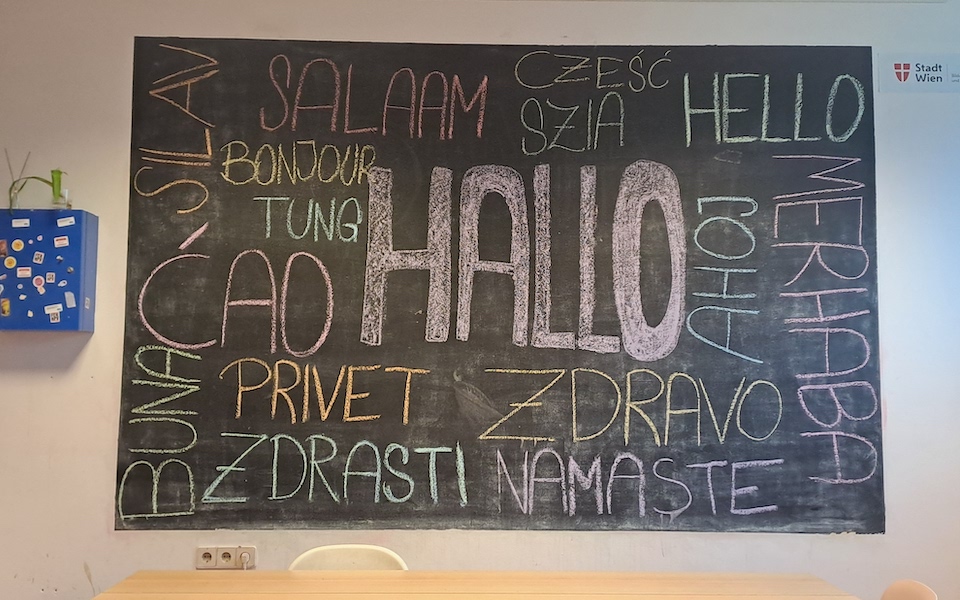 SILAV
SALAAM
CZEŚĆ
SZIA
HELLO
BONJOUR
TUNG
HALLO
AHOJ
MERHABA
ĆAO
BUNA
PRIVET
ZDRAVO
ZDRASTI
NAMASTE
Stadt
Wien